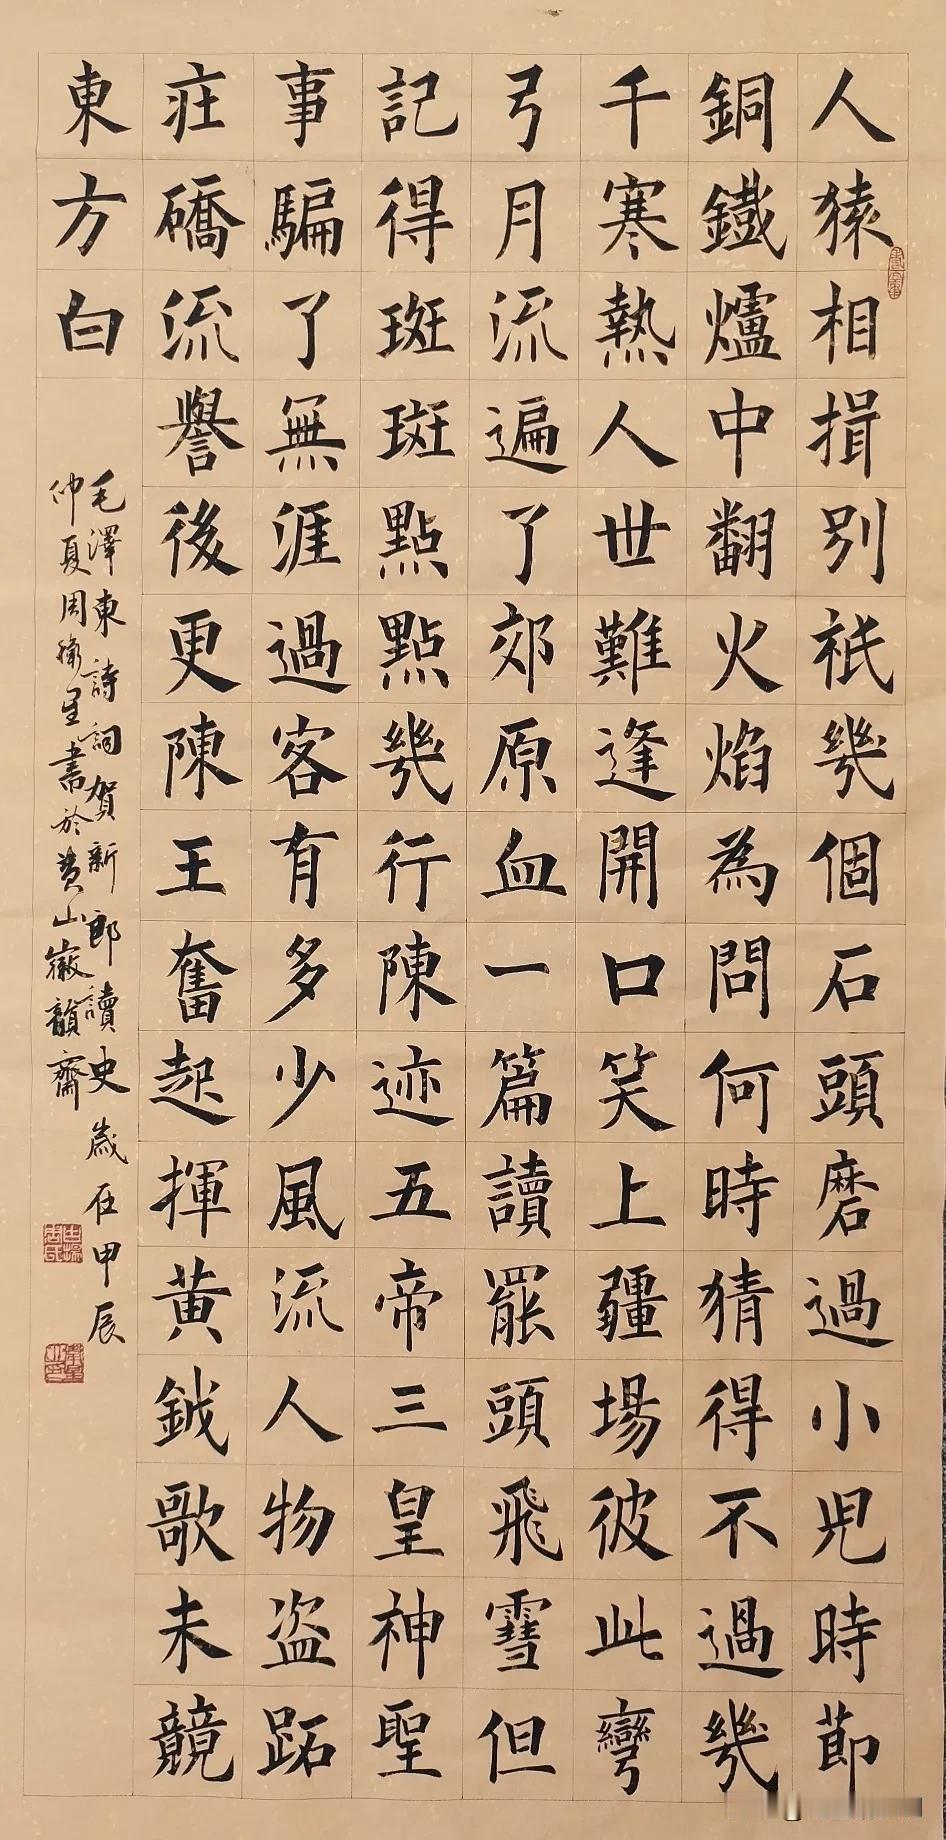 人猿相揖別祇幾個石頭磨過小兒時節
銅鐵爐中翻火焰為問何時猜得不過幾
千寒熱人世難逢開口笑上疆場彼此彎
弓月流遍了郊原血一篇讀罷頭飛雪但
記得斑斑點點幾行陳迹五帝三皇神聖
事騙了無涯過客有多少風流人物盗跖
莊礄流譽後更陳王奮起揮黃鉞歌未競
東方白
毛澤東詩詞賀新郎讀史歲在甲辰
仲夏周衛星書於黄山徽韻齋